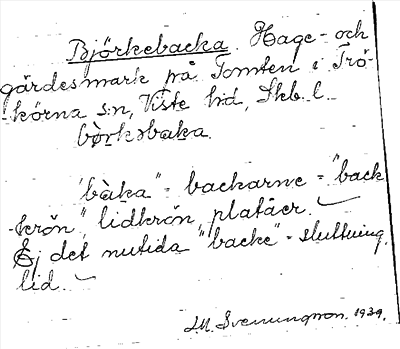 Björkebacka. Hage- och
gärdesmark på Tomten i Trö-
-körna s:n, Viste hd, Skb. l.
bòrkəbaka.
"bàka" = backarne = "back
-krön", lidkrön, platåer.
Ej det nutida "backe" = sluttning,
lid.
J.M. Svenungson. 1939.